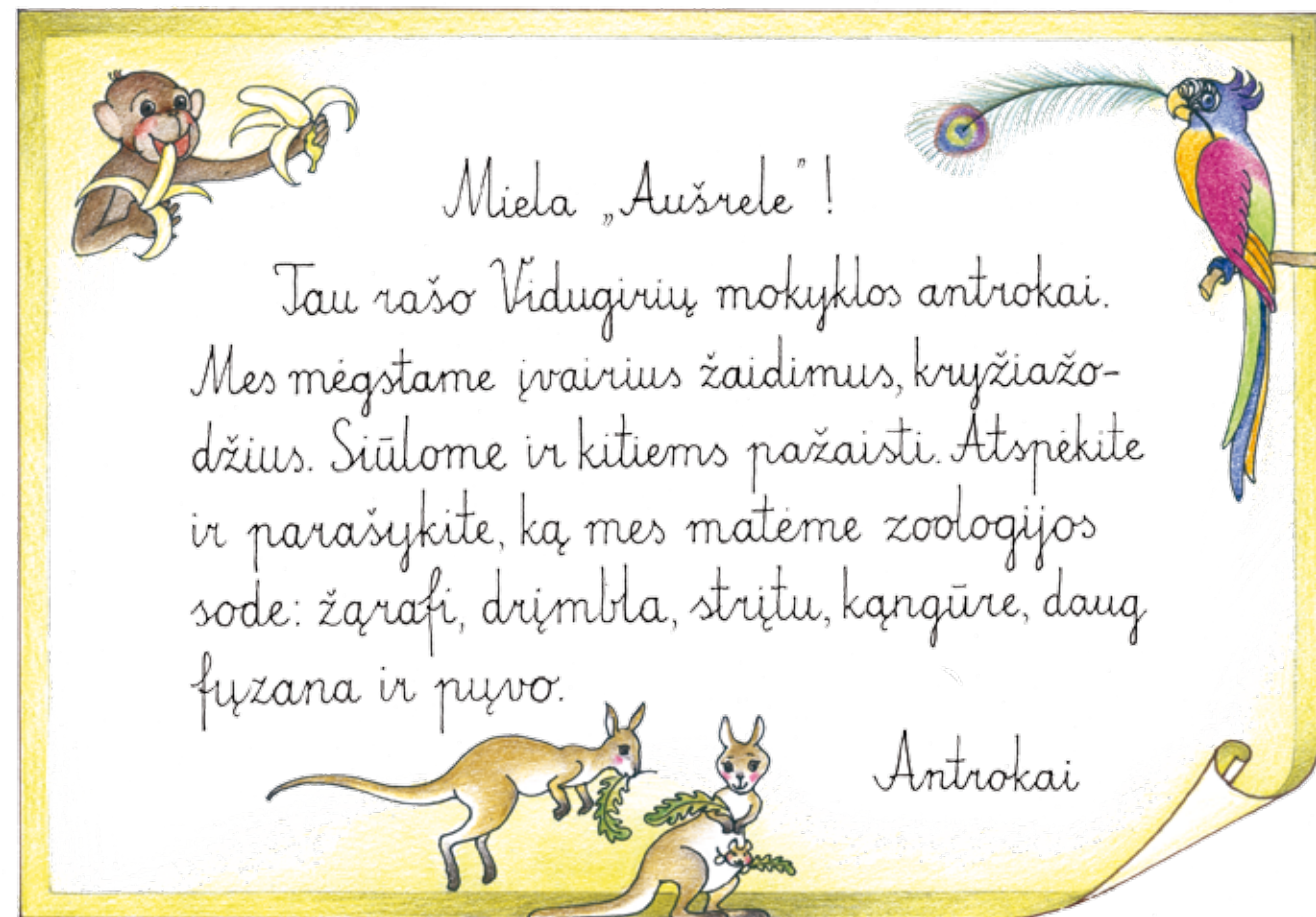 Miela „Aušrele”!
Tau rašo Vidugirių mokyklos antrokai.
Mes mėgstame įvairius žaidimus, kryžiažo-
džius. Siūlome ir kitiems pažaisti. Atspėkite
ir parašykite, ką mes matėme zoologijos
sode: žąrafi, drįmbla, strįtu, kąngūre, daug
fųzana ir pųvo.
Antrokai